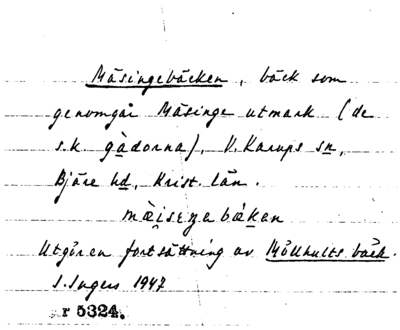 Mäsingebäcken, bäck som
genomgår Mäsinge utmark (de
s.k. gàdorna), V. Karups sn,
Bjäre hd, Krist. län.
Utgör en fortsättning av Möllhults bäck.
I. Ingers 1947
r 5324.